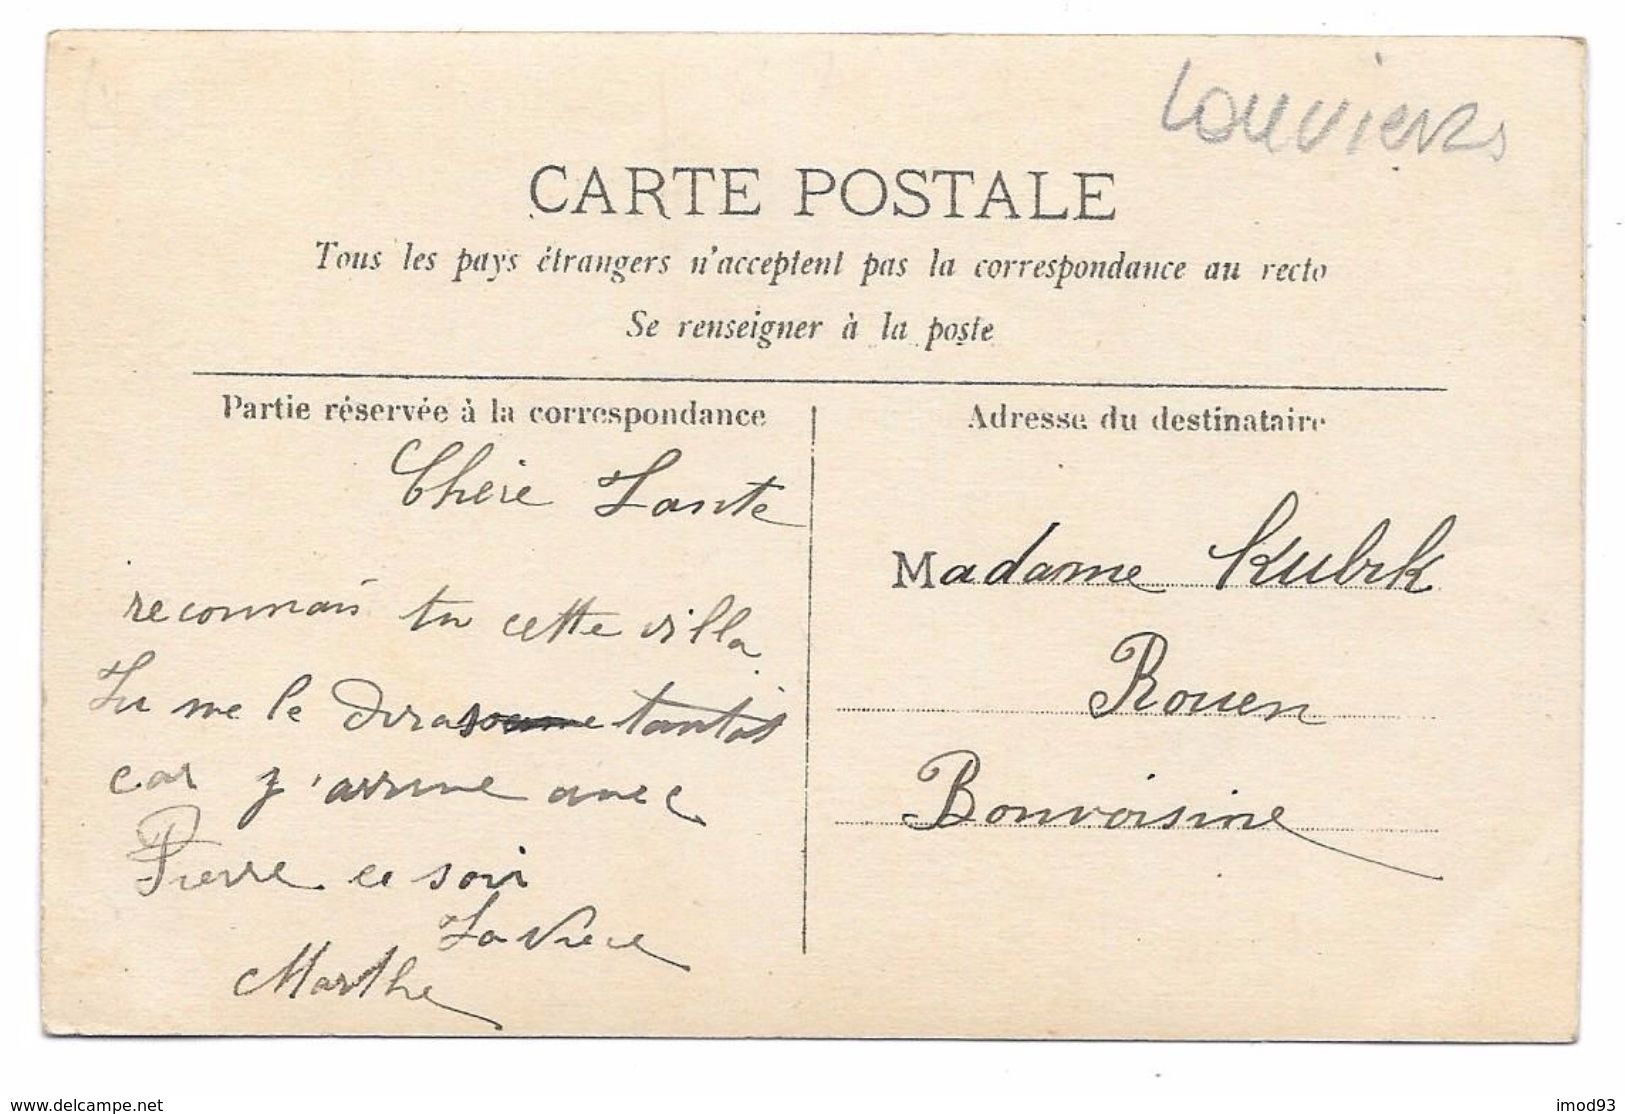 Louviers
CARTE POSTALE
Tous les pays étrangers n'acceptent pas la correspondance au recto
Se renseigner à la poste
Partie réservée à la correspondance
Chère Tante
reconnais tu cette villa
Tu me le diras tantôt
car j'arrive avec
Pierre ce soir
Ta Nièce
Marthe
Adresse du destinataire
Madame Kubik
Rouen
Bonvoisine
www.delcampe.net
imod93